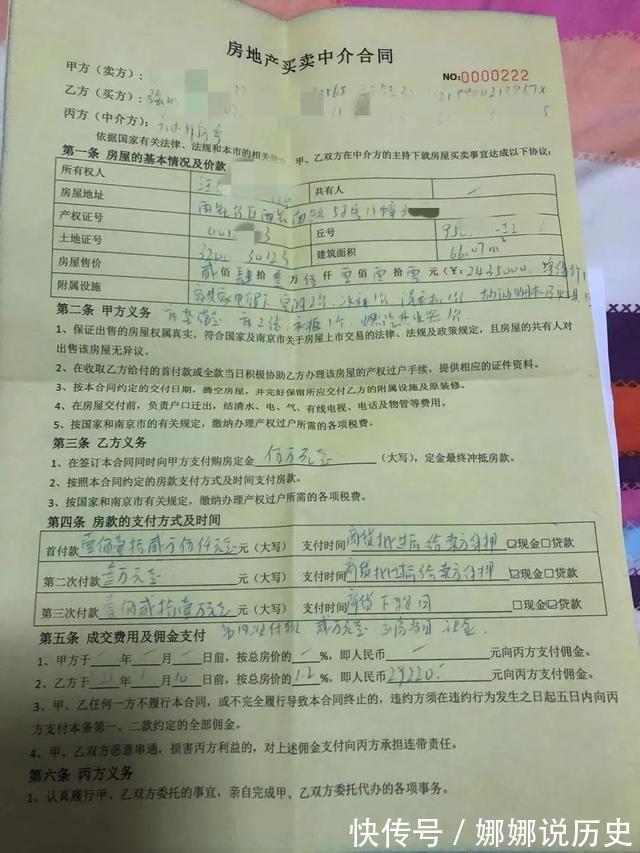 房地产买卖中介合同
甲方（卖方）：
NO:0000222
乙方（买方）：
丙方（中介方）：
依据国家有关法律、法规和本市的相关 甲、乙双方在中介方的主持下就房屋买卖事宜达成以下协议：
第一条 房屋的基本情况及价款
所有权人 共有人
房屋地址
产权证号 丘号
土地证号 建筑面积 66.07m²
房屋售价 贰佰肆拾叁万伍仟零佰零拾元（¥：2435000
附属设施
第二条 甲方义务
1、保证出售的房屋权属真实，符合国家及南京市关于房屋上市交易的法律、法规及政策规定，且房屋的共有人对
出售该房屋无异议。
2、在收取乙方给付的首付款或全款当日积极协助乙方办理该房屋的产权过户手续，提供相应的证件资料。
3、按本合同约定的交付日期，腾空房屋，并完好保留所应交付乙方的附属设施及原装修。
4、在房屋交付前，负责户口迁出，结清水、电、气、有线电视、电话及物管等费用。
5、按国家和南京市的有关规定，缴纳办理产权过户所需的各项税费。
第三条 乙方义务
1、在签订本合同同时向甲方支付购房定金 伍万元整 （大写），定金最终冲抵房款。
2、按照本合同约定的房款支付方式及时间支付房款。
3、按国家和南京市有关规定，缴纳办理产权过户所需的各项税费。
第四条 房款的支付方式及时间
首付款 壹佰壹拾贰万伍仟元整 元（大写） 支付时间 商贷批过后给卖方解押 ☑现金□贷款
第二次付款 元（大写） 支付时间 商贷批过后给卖方解押 ☑现金□贷款
第三次付款 壹佰贰拾壹万元整 元（大写） 支付时间 商贷下款同 □现金☑贷款
第五条 成交费用及佣金支付 第四次付款 贰万元整 现金
1、甲方于 年 月 日前，按总房价的 %，即人民币 元向丙方支付佣金。
2、乙方于 21 年 1 月 10 日前，按总房价的 1.2 %，即人民币 29220 元向丙方支付佣金。
3、甲、乙任何一方不履行本合同，或不完全履行导致本合同终止的，违约方须在违约行为发生之日起五日内向丙
方支付本条第一、二款约定的全部佣金。
4、甲、乙双方恶意串通，损害丙方利益的，对上述佣金支付向丙方承担连带责任。
第六条 丙方义务
1、认真履行甲、乙双方委托的事宜，亲自完成甲、乙双方委托代办的各项事务。
快传号／娜娜说历史